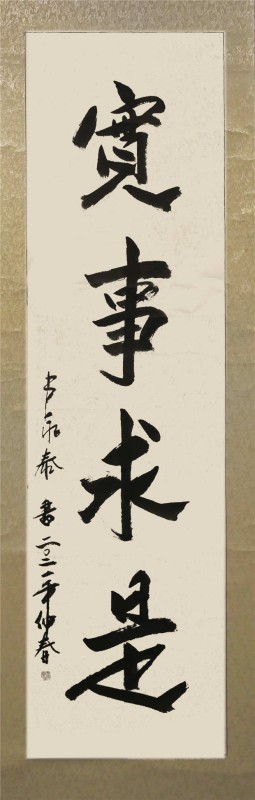 實事求是
永泰書二〇二一年仲春